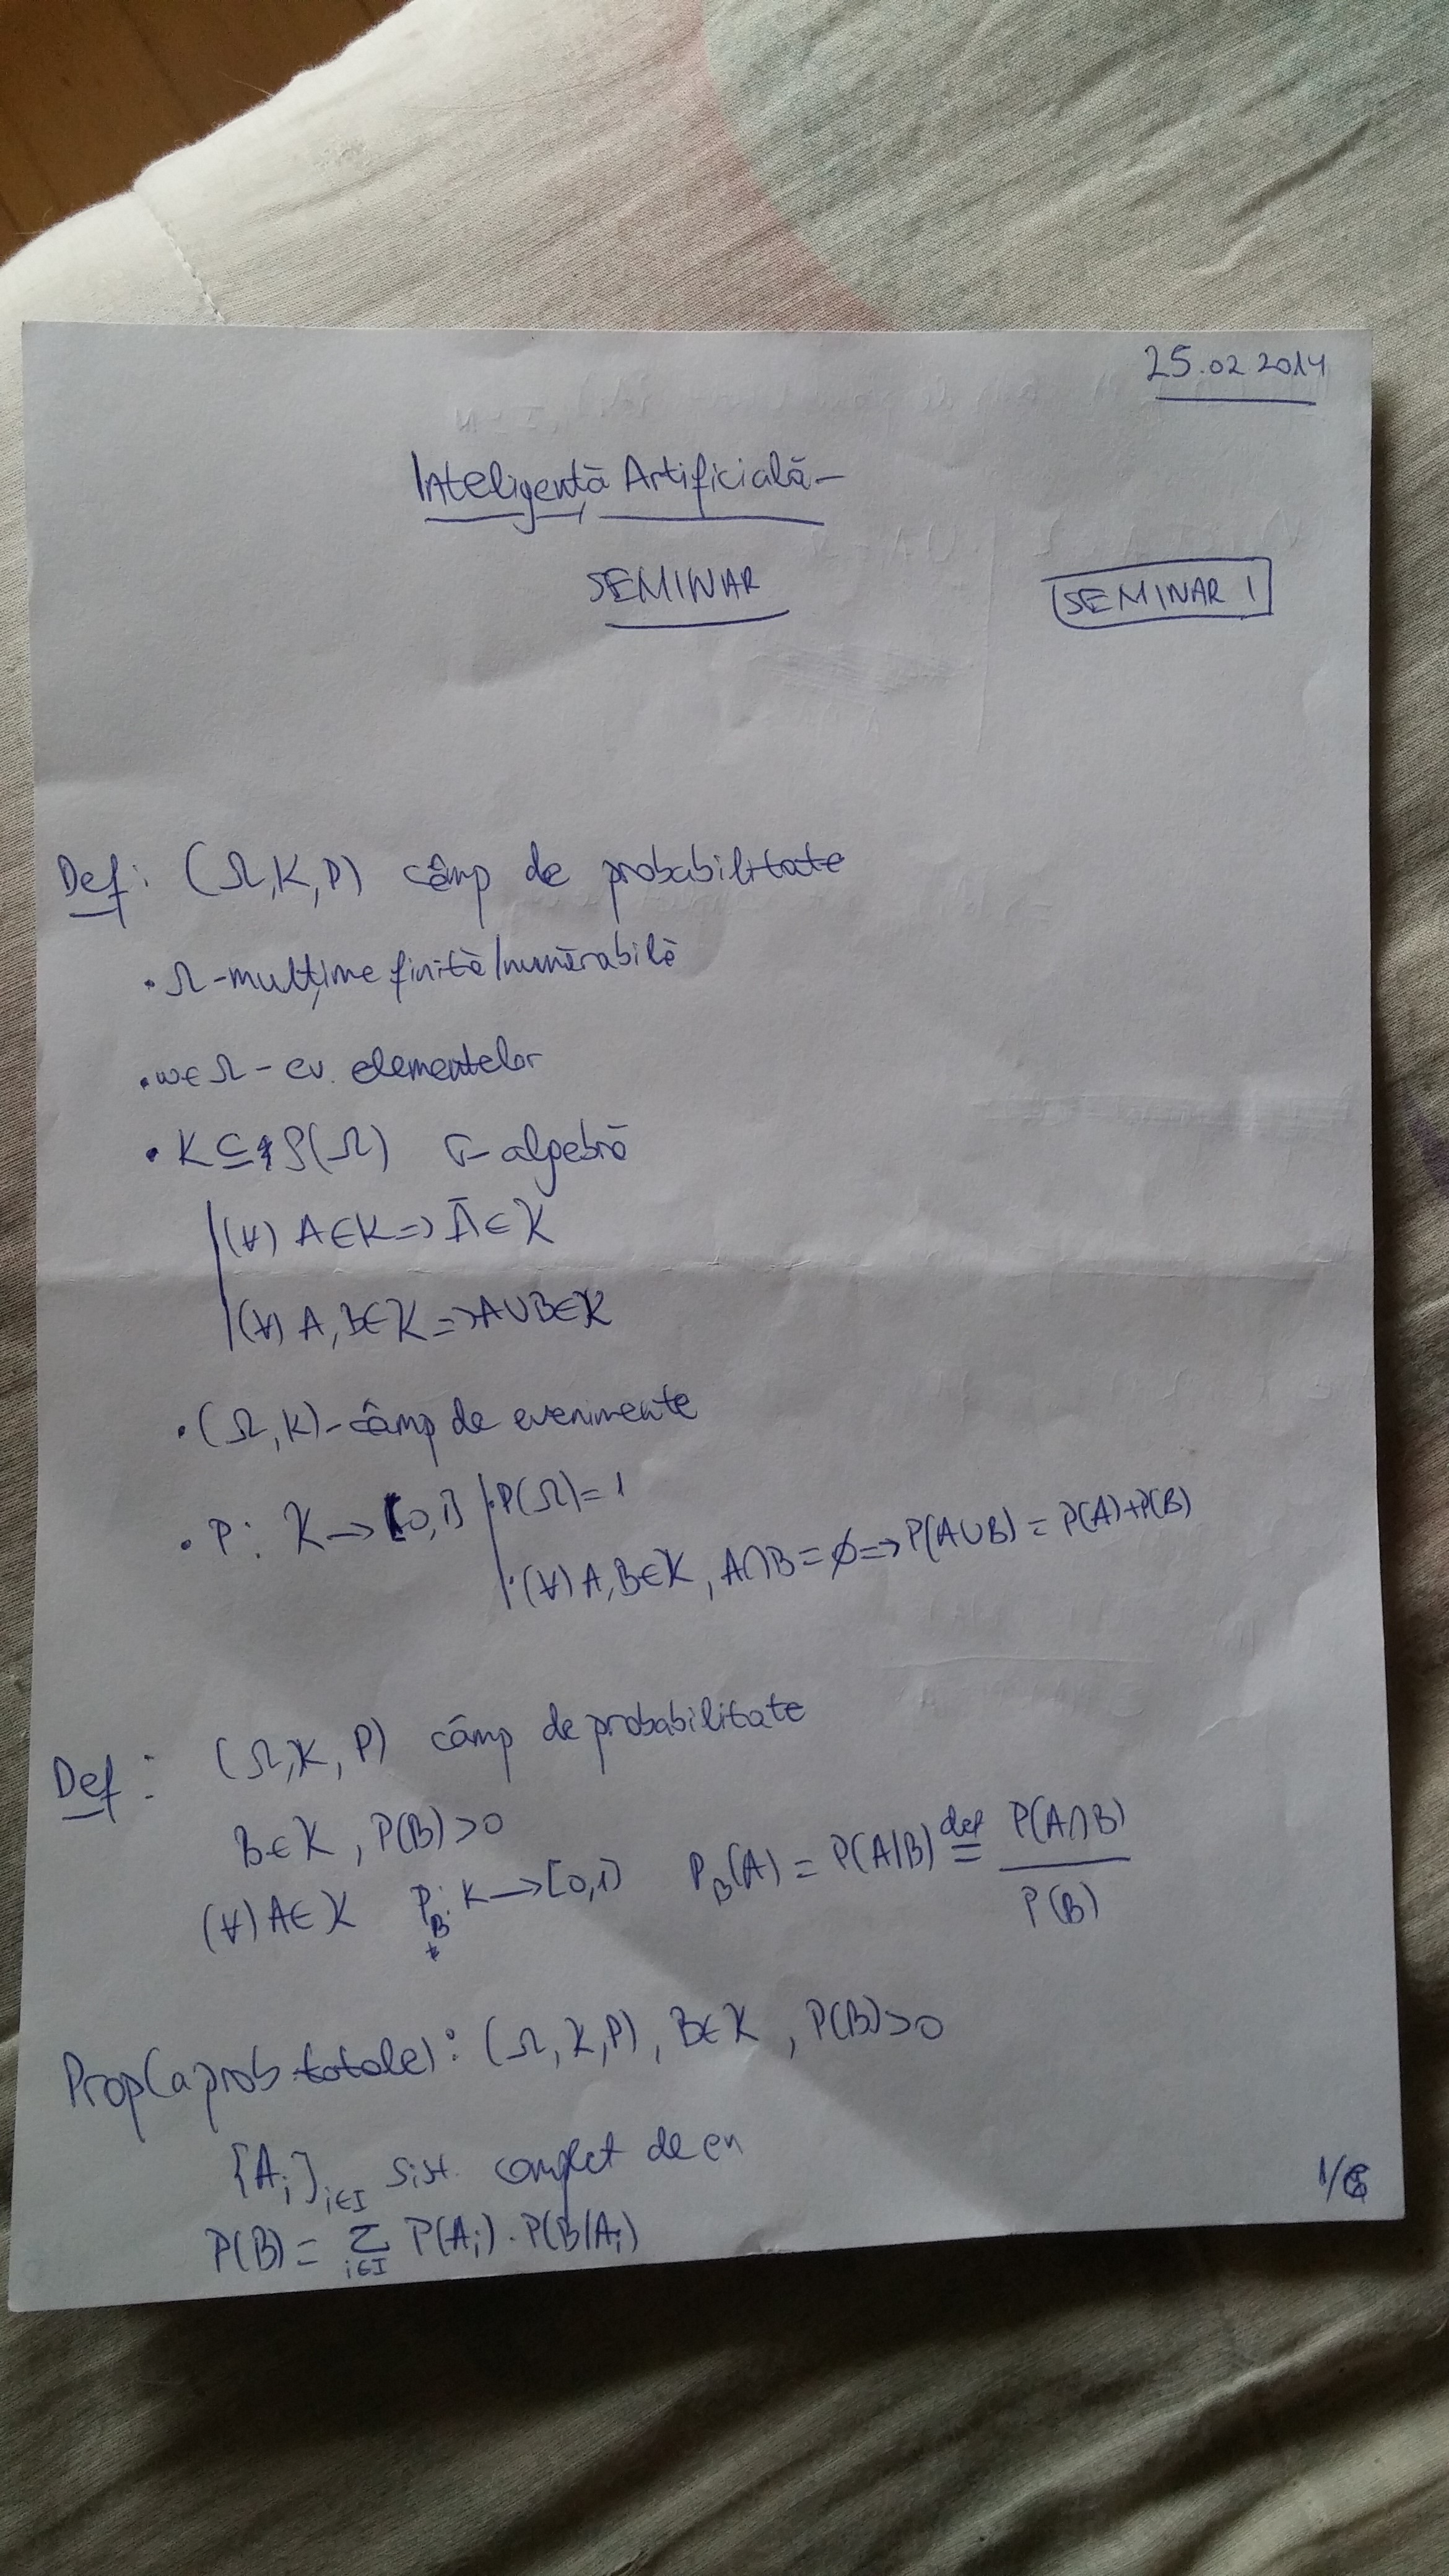 25.02 2014
Inteligență Artificială-
SEMINAR
SEMINAR 1
Def: (Ω,K,P) câmp de probabilitate
• Ω-mulțime finită/numărabilă
• ω∈Ω - ev. elementelor
• K⊆P(Ω) σ-algebră
(∀) A∈K=> Ā∈K
(∀) A,B∈K=>A∪B∈K
• (Ω,K)-câmp de evenimente
• P: K→[0,1] • P(Ω)=1
• (∀) A,B∈K, A∩B=∅=>P(A∪B)=P(A)+P(B)
Def: (Ω,K,P) câmp de probabilitate
B∈K, P(B)>0
(∀) A∈K P_B: K→[0,1] P_B(A)=P(A|B) def= P(A∩B)/P(B)
*
Prop(a prob totale): (Ω,K,P), B∈K, P(B)>0
{A_i}_{i∈I} sist. complet de ev
P(B)= Σ_{i∈I} P(A_i)·P(B|A_i)